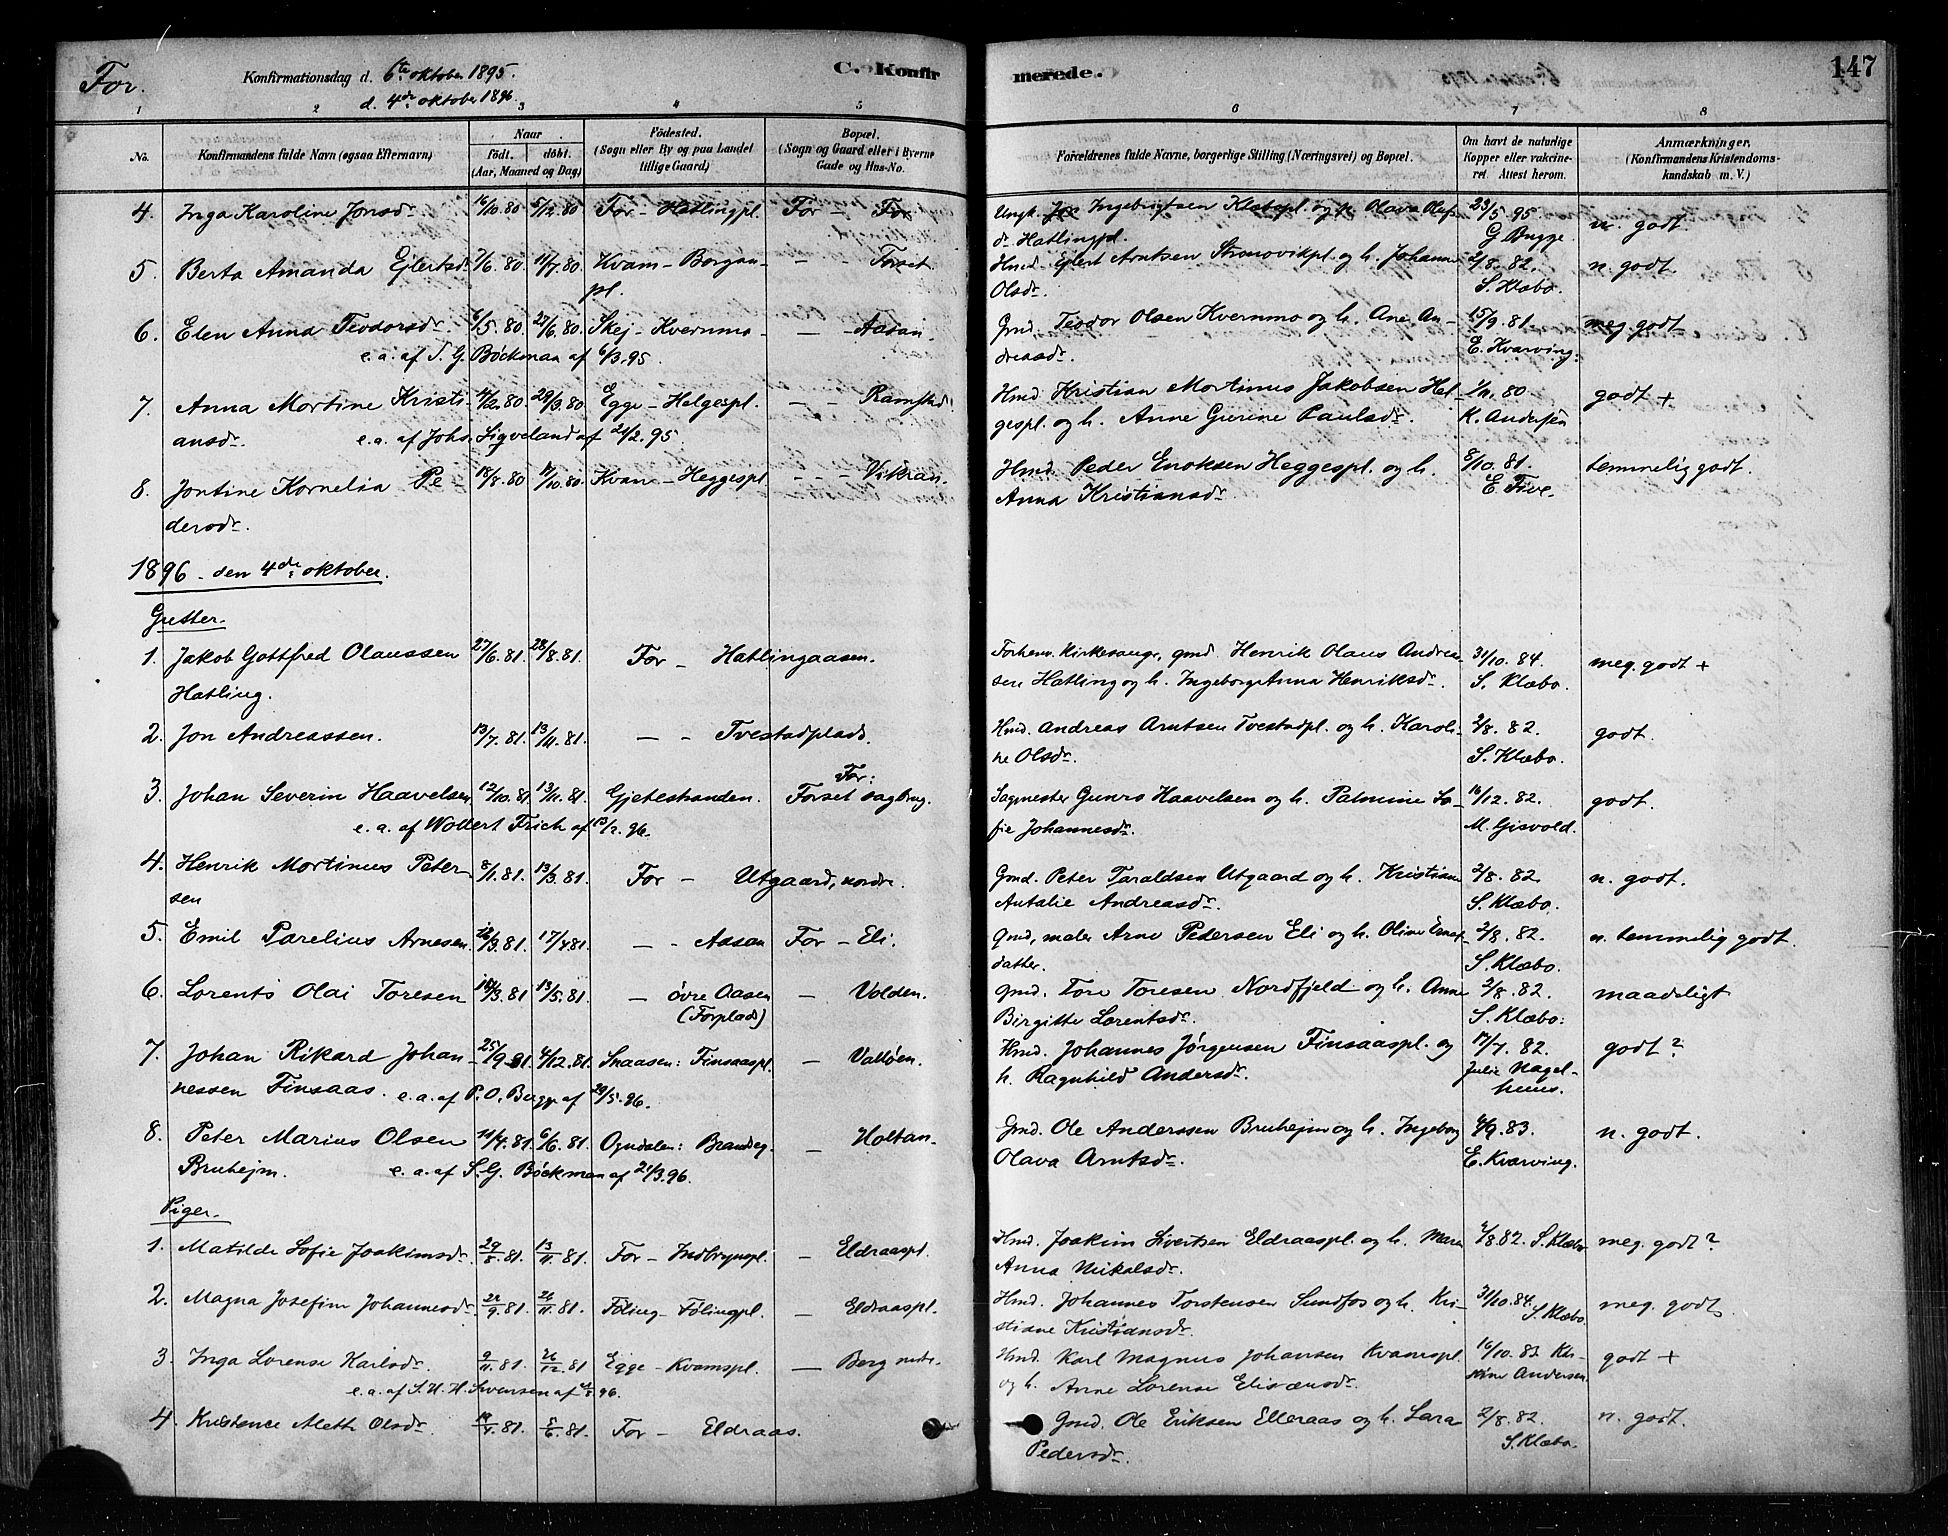 For.
Konfirmationsdag d. 6te oktober 1895.
d. 4de oktober 1896.
C. Konfirmerede.
147
1 2 3 4 5 6 7 8
No.
Konfirmandens fulde Navn (ogsaa Efternavn).
Naar
födt. döbt.
(Aar, Maaned og Dag)
Födested.
(Sogn eller By og paa Landet
tillige Gaard)
Bopæl.
(Sogn og Gaard eller i Byerne
Gade og Hus-No.
Forældrenes fulde Navne, borgerlige Stilling (Næringsvei) og Bopæl.
Om havt de naturlige
Kopper eller vakcine-
ret. Attest herom.
Anmærkninger.
(Konfirmandens Kristendoms-
kundskab m. V.)
4. Inga Karoline Jonsdr. 16/10.80 5/12.80 For - Hatlingpl. For - For Ungk. Jon Ingebrigtsen pl. og p. Olava Olafs- 23/5.95 n. godt.
dr. Hatlingpl. G Bugge.
5. Berta Amanda Ejlertsdr. 7/6.80 11/7.80 Kvam - Borgan- - - Forset Hmd. Ejlert Arntsen pl. og h. Johanna 2/8.82. n. godt.
pl. Olsdr. S. Klæbo.
6. Elen Anna Teodorsdr. 6/5.80 27/6.80 Skej - Kvernmo - - - Aasan. Gmd. Teodor Olsen Kvernmo og h. Ane An- 15/9.81. meg. godt
e. a. af S. G. Böckman af 6/3.95 dreasdr. E. Kvarving.
7. Anna Mortine Kristi- 4/2.80 29/3.80 Egge - Helgespl. - - Ramstad. Hmd Kristian Mortinus Jakobsen Hel- 1/11.80 godt +
ansdr. e. a. af Johs. Sigveland af 21/2.95. gespl. og h. Anne Gurine Paulsdr. K. Andersen
8. Jontine Kornelia Pe 18/8.80 17/10.80 Kvam - Heggespl - - - Vikran. Hmd. Peder Enoksen Heggespl. og h. 8/10.81. temmelig godt.
dersdr. Anna Kristiansdr. E. Five.
1896 - den 4de oktober.
Gutter.
1. Jakob Gottfred Olaussen 27/6.81. 28/8.81. For - Hatlingaasen. Forhenv. kirkesangr., gmd. Henrik Olaus Andrea- 31/10.84. meg. godt +
Hatling. sen Hatling og h. Ingeborg Anna Henriksdr. S. Klæbo.
2. Jon Andreassen. 13/7.81. 13/11.81. - - Tvestadplads. Hmd. Andreas Arntsen Tvestadpl. og h. Karoli- 2/8.82. godt.
ne Olsdr. S. Klæbo.
3. Johan Severin Haavelsen 12/10.81. 13/11.81. Gjetestranden. For: Forset sagbrug. Sagmester Gunro Haavelsen og h. Palmine So- 16/12.82. godt.
e. a. af Wollert Frich af 13/2.96. fie Johannesdr. M. Gisvold.
4. Henrik Mortinus Peter- 8/1.81. 13/3.81. For - Utgaard, nordre. Gmd. Peter Taraldsen Utgaard og h. Kristiane 2/8.82. n. godt.
sen Antalie Andreasdr. S. Klæbo.
5. Emil Parelius Arnesen 16/3.81. 17/4 81. - - Aasan For - Eli. Gmd, maler Arne Pedersen Eli og h. Oline 2/8.82. n. temmelig godt.
datter. S. Klæbo.
6. Lorents Olai Toresen 18/3.81 13/5.81. - övre Aasen - Volden. Gmd. Tore Toresen Nordfjeld og h. Anne 2/8.82. maadeligt
(Forplads) Birgitte Lorentsdr. S. Klæbo.
7. Johan Rikard Johan- 25/9 81 4/12.81. Snaasen: Finsaaspl. - Valløen. Hmd. Johannes Jörgensen Finsaaspl. og 17/7.82. godt?
nessen Finsaas. e. a. af P. O. Bugge af 29/5.96. h. Ragnhild Andersdr. Julie Nagel-
huus.
8. Peter Marius Olsen 11/4.81. 6/6.81. Ogndalen: Brandeg. - Holtan. Gmd. Ole Anderssen Bruhejm og h. Ingeborg 4/9.83. n. godt.
Bruhejm. e. a. af S. G. Böckman af 21/3.96. Olava Arntsdr. E. Kvarving.
Piger.
1. Matilde Sofie Joakimsdr. 29/8.81. 13/11.81. For - Indbrynpl. - Eldraaspl. Hmd. Joakim Sivertsen Eldraaspl. og h. Maren 2/8.82. S. Klæbo meg. godt?
Anna Mikalsdr.
2. Magna Josefine Johannesdr. 22/9.81. 26/11.81. Föling - Fölingpl. - Eldraaspl. Hmd. Johannes Torstensen Sundfos og h. Kri- 31/10.84. S. Klæbo. meg. godt.
stiane Kristiansdr.
3. Inga Lorense Karlsdr. 9/11.81. 26/12.81 Egge - Kvamspl. - Berg nedre. Hmd. Karl Magnus Johansen Kvamspl. 16/10.82 Kri- godt +
e. a. af S. H. H. Svensen af 96. og h. Anne Lorense Elisæusdr. stine Andersen
4. Kristence Aleth Olsdr. 19/4.81. 5/6.81. For - Eldraas. Gmd. Ole Eriksen Elleraas og h. Sara 2/8.82. n. godt.
Pedersdr. S. Klæbo.